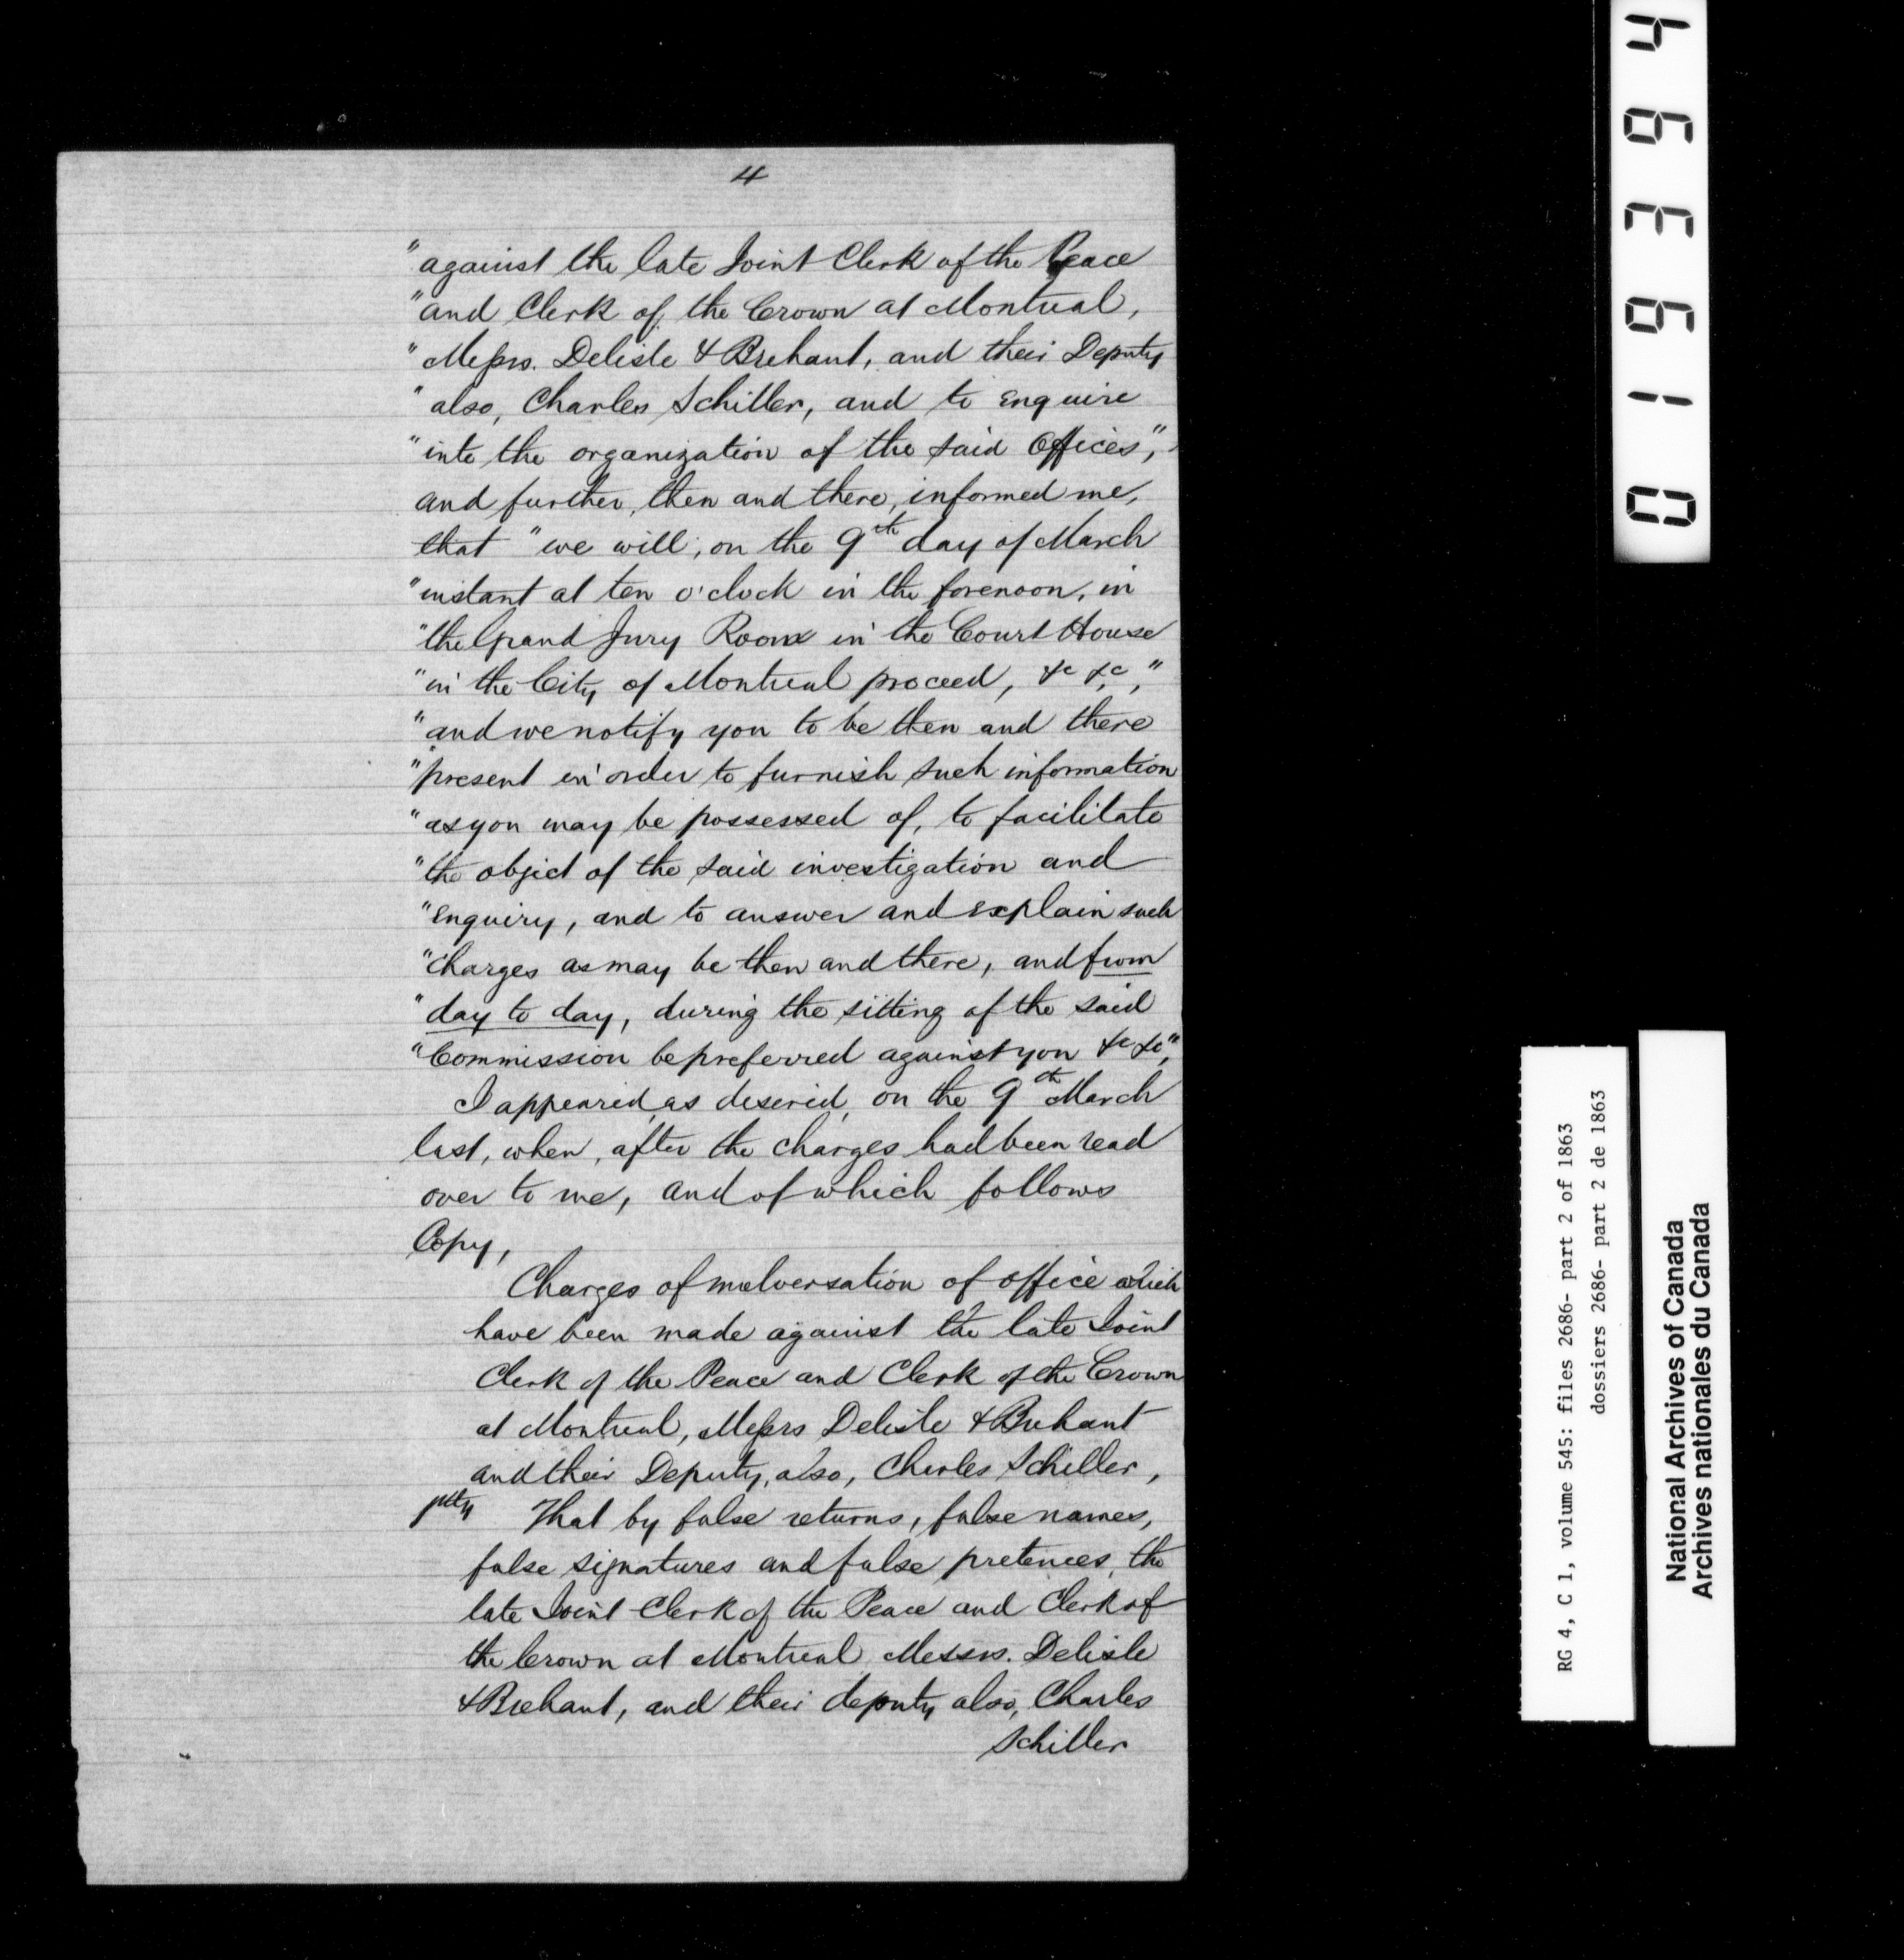 4
"against the late Joint Clerk of the Peace
"and Clerk of the Crown at Montreal,
"Messrs. Delisle & Brehaut, and their Deputy
"also, Charles Schiller, and to enquire
"into the organization of the said Offices,"
and further, then and there, informed me,
that "we will, on the 9th day of March
"instant at ten o'clock in the forenoon, in
"the Grand Jury Room in the Court House
"in the City of Montreal proceed, &c &c,"
"and we notify you to be then and there
"present in order to furnish such information
"as you may be possessed of, to facilitate
"the object of the said investigation and
"enquiry, and to answer and explain such
"charges as may be then and there, and from
"day to day, during the sitting of the said
"Commission be preferred against you &c &c",
I appeared, as desired, on the 9th March
last, when, after the charges had been read
over to me, and of which follows
Copy,
Charges of malversation of office which
have been made against the late Joint
Clerk of the Peace and Clerk of the Crown
at Montreal, Messrs Delisle & Brehaut
and their Deputy, also, Charles Schiller,
That by false returns, false names,
false signatures and false pretences, the
late Joint Clerk of the Peace and Clerk of
the Crown at Montreal Messrs. Delisle
& Brehaut, and their deputy also, Charles
Schiller
0 1 6 3 9 4
RG 4, C 1, volume 545: files 2686- part 2 of 1863
dossiers 2686- part 2 de 1863
National Archives of Canada
Archives nationales du Canada